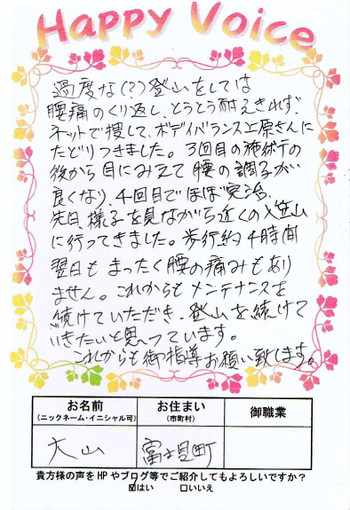 Happy Voice
過度な(?)登山をしては
腰痛のくり返し、とうとう耐えきれず、
ネットで捜して、ボディバランス上原さんに
たどりつきました。3回目の施術
後から目にみえて腰の調子が
良くなり、4回目でほぼ完治、
先日、様子を見ながら近くの登山
に行ってきました。歩行約4時間
翌日もまったく腰の痛みもあり
ません。これからもメンテナンスを
続けていただき、登山を続けて
いきたいと思っています。
これからも御指導お願い致します。
お名前
(ニックネーム・イニシャル可)
お住まい
(市町村)
御職業
大山
富士見町
貴方様の声をHPやブログ等でご紹介してもよろしいですか?
☑はい □いいえ